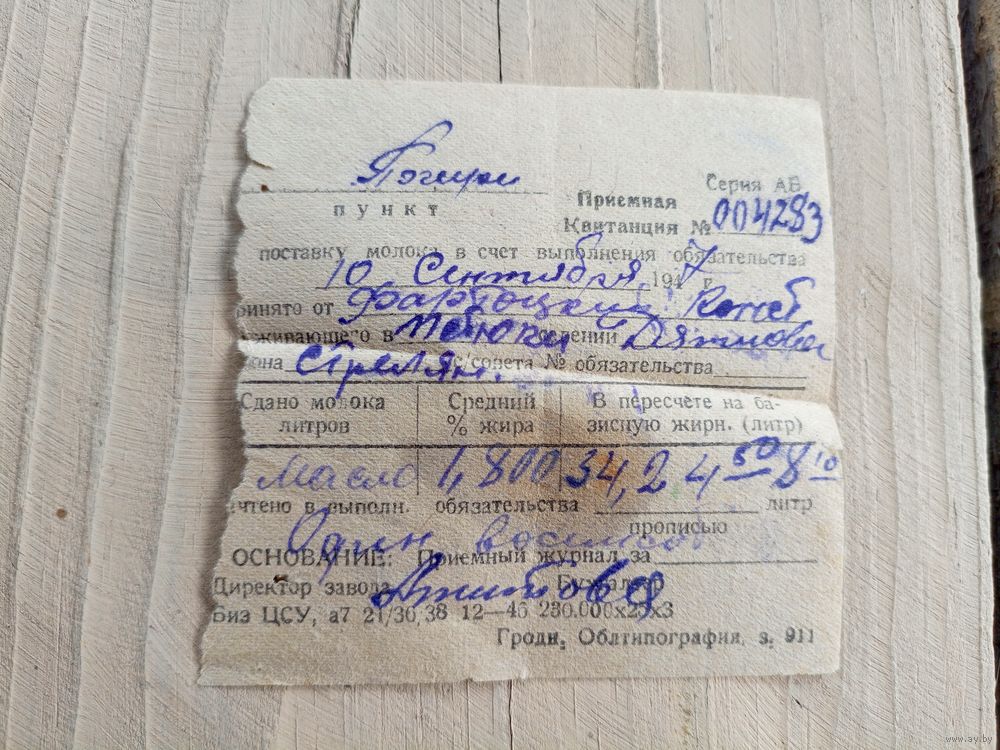 Погири
пункт
Серия АБ
Приемная
Квитанция № 004283
поставку молока в счет выполнения обязательства
10 Сентября 1947 г.
ринято от
живающего в
она Стрелян. с/совета № обязательства
Сдано молока литров Средний % жира В пересчете на базисную жирн. (литр)
Масло 1,800 34,2 4 50 8 10
чтено в выполн. обязательства литр
прописью
Один восемсот
ОСНОВАНИЕ: Приемный журнал за
Директор завода Бухгалтер
Биз ЦСУ, а7 21/30,38 12—46 230.000х25х3
Гродн, Облтипография, з. 911
www.ay.by